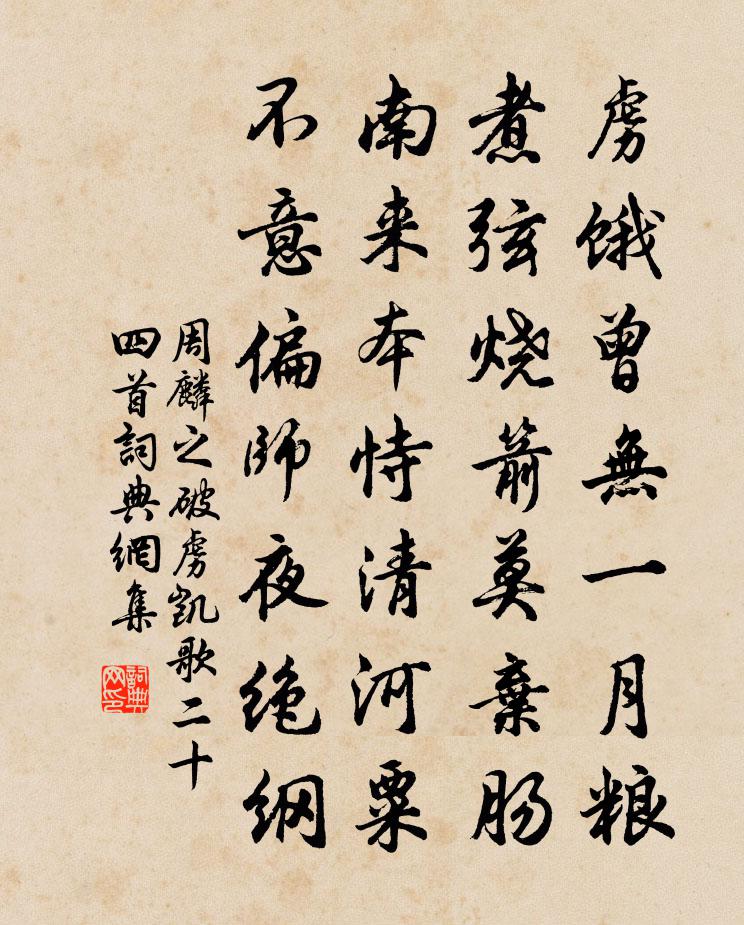 虏饿曾無一月粮
煮弦烧箭莫棄肠
南来本恃清河粟
不意偏師夜绝纲
周麟之破虏凱歌二十
四首詞典網集
詞典
网印